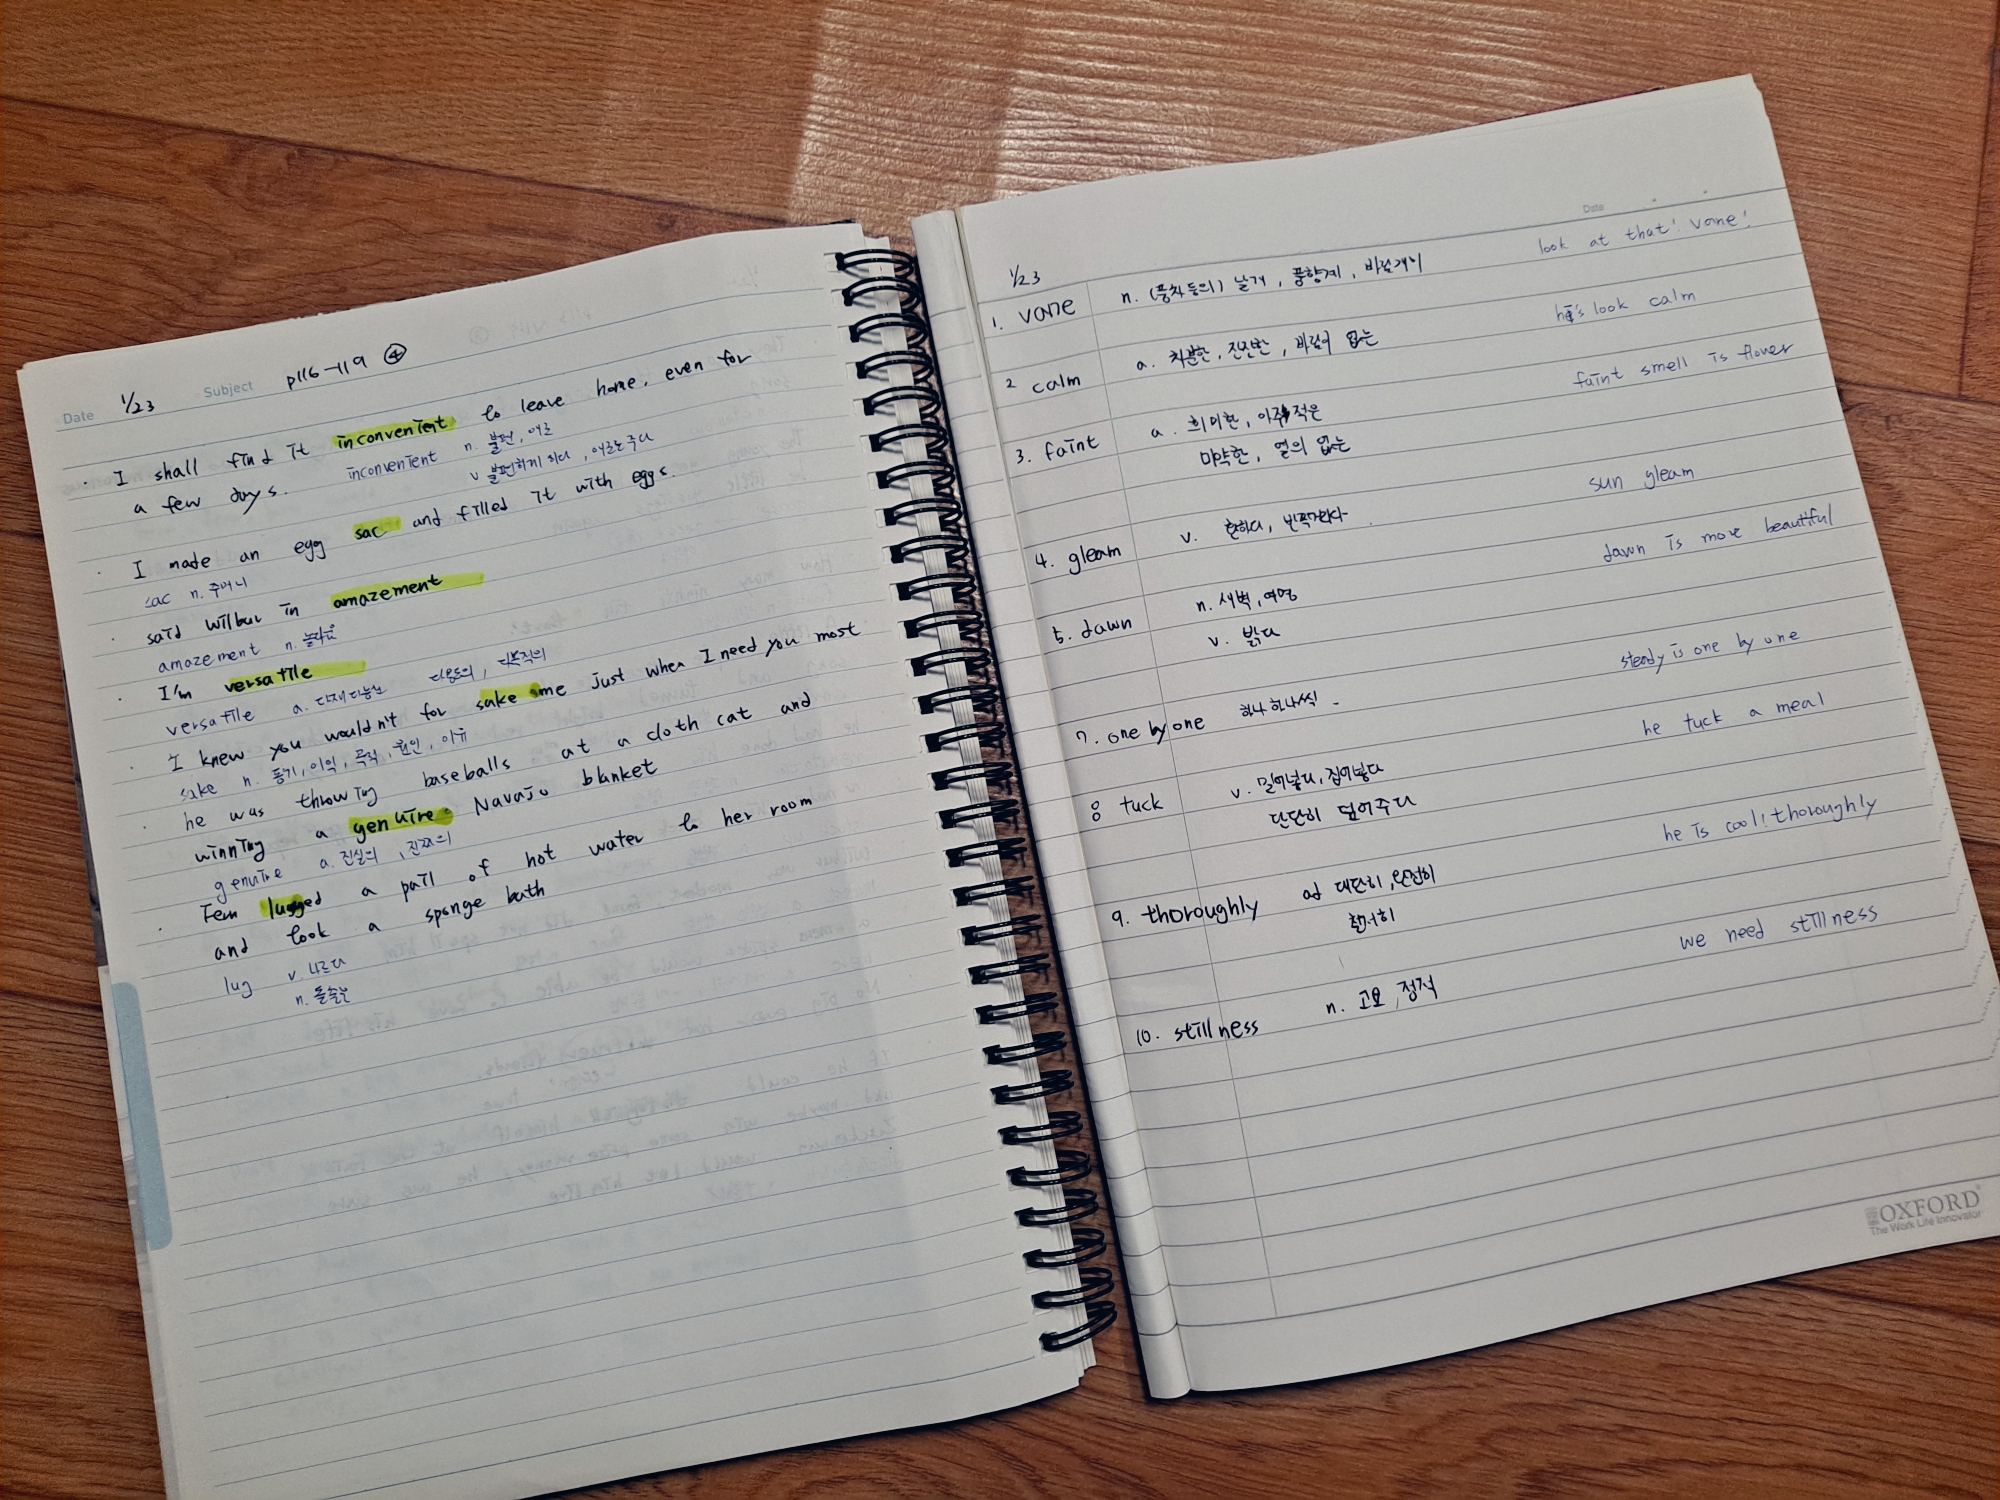 Date 1/23 Subject p116-119 ④
I shall find it inconvenient to leave home, even for
inconvenient n. 불편, 애로
a few days.
v 불편하게 하다, 애로를 주다
I made an egg sac and filled it with eggs.
sac n. 주머니
said wilbur in amazement
amazement n. 놀라움
I'm versatile
versatile a. 다재다능한 다용도의, 다목적의
I knew you wouldn't for sake me just when I need you most
sake n. 동기, 이익, 목적, 원인, 이유
he was throwing baseballs at a cloth cat and
winning a genuine Navajo blanket
genuine a. 진실의, 진짜의
Fern lugged a pail of hot water to her room
and took a sponge bath
lug v. 나르다
n.
Date
1/23
1. vane n. (풍차 등의) 날개, 풍향계, 바람개비
look at that! vane!
2 calm a. 차분한, 잔잔한, 바람이 없는
he's look calm
3. faint a. 희미한, 아주 적은
미약한, 열의 없는
faint smell is flower
4. gleam v. 환하다, 반짝거리다
sun gleam
5. dawn n. 새벽, 여명
v. 밝다
dawn is more beautiful
7. one by one 하나 하나씩
steady is one by one
8 tuck v. 밀어넣다, 집어넣다
단단히 덮어주다
he tuck a meal
9. thoroughly ad 대단히, 완전히
철저히
he is cool! thoroughly
10. stillness n. 고요, 정적
we need stillness
OXFORD
The Work Life Innovator